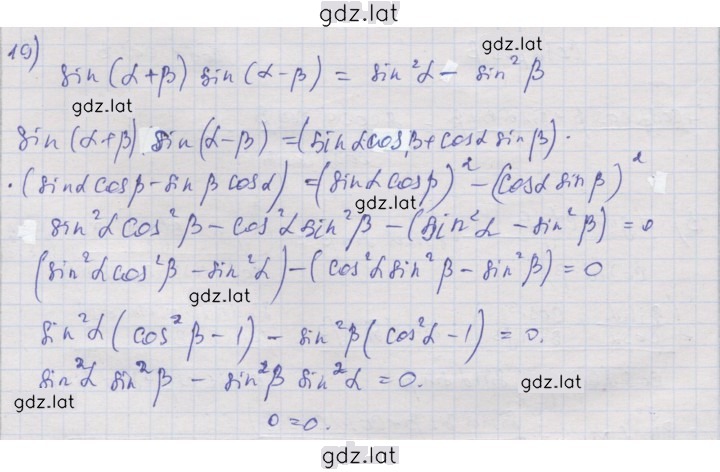 gdz.lat
19)
gdz.lat
sin(α+β) sin(α-β) = sin²α - sin²β
gdz.lat
sin(α+β) sin(α-β) = (sinα cosβ + cosα sinβ) ·
· (sinα cosβ - sinβ cosα) = (sinα cosβ)² - (cosα sinβ)²
gdz.lat
sin²α cos²β - cos²α sin²β - (sin²α - sin²β) = 0
(sin²α cos²β - sin²α) - (cos²α sin²β - sin²β) = 0
gdz.lat
sin²α (cos²β - 1) - sin²β (cos²α - 1) = 0.
sin²α sin²β - sin²β sin²α = 0.
gdz.lat
gdz.lat
0=0.
gdz.lat